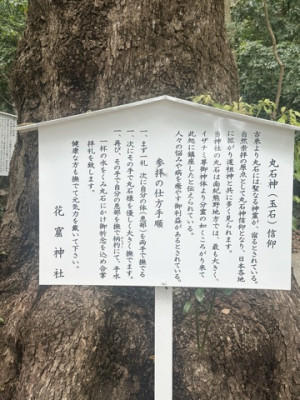 丸石神(玉石)信仰
古来より丸石には聖なる神霊が、宿るとされている。
自然崇拝の原点として丸石神信仰となり、日本各地
に拡がり道祖神と共に多く見られます。
当神社の丸石は南紀熊野地方では、最も大きく、
イザナミ尊御神体より分霊の如くころがり来て
此処に鎮座したと伝えられている。
人々の悩みや病を癒やす御利益があるとされている。
参拝の仕方手順
一、まず一礼 次に自分の体(患部)を両手で撫でる
一、次にその手で丸石様を優しく大きく撫でます。
一、再び、その手で自分の患部を撫で柄杓にて、手水
一杯の水をくみ丸石にかけ御祈念を込め合掌
拝礼を致します。
健康な方も撫でて元気力を戴いて下さい。
花窟神社